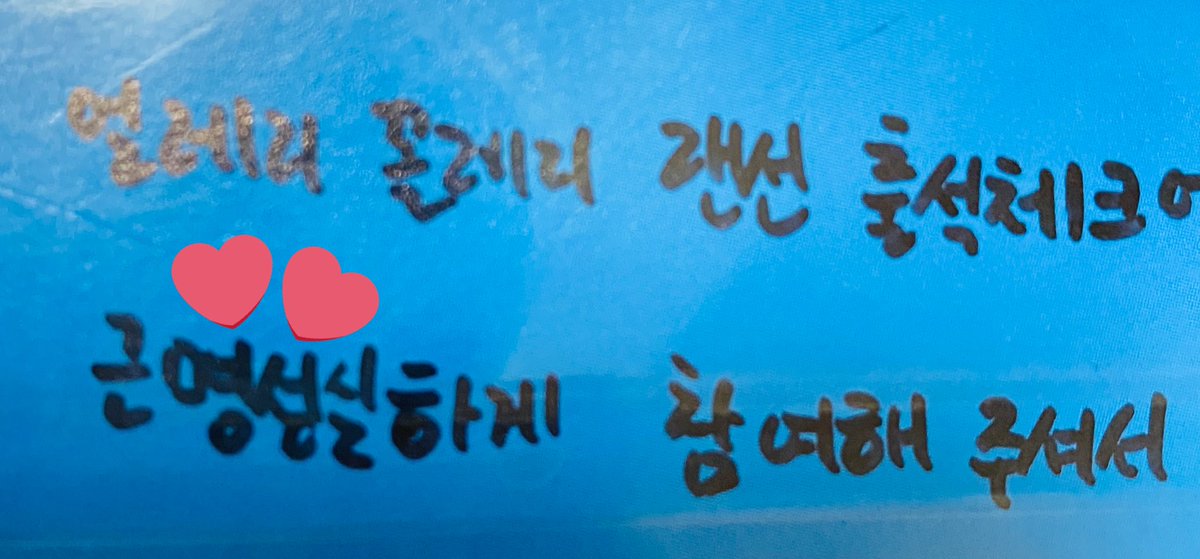 얼레리 꼴레리 랜선 출석체크에
근명성실하게 참여해 주셔서